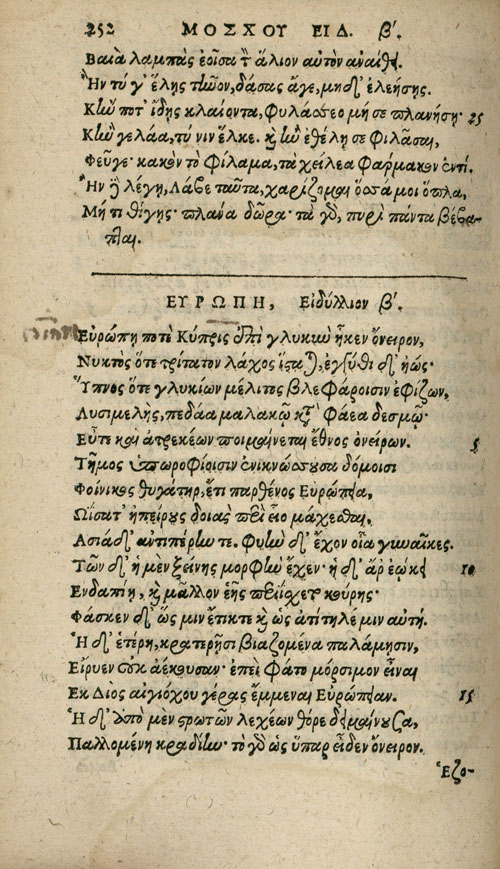 252 ΜΟΣΧΟΥ ΕΙΔ. β΄.
Βαιὰ λαμπὰς ἐοῖσα τ̀ ἅλιον αὐτὸν ἀναίθει.
Ἢν τύ γ' ἕλῃς τῆνον, δάσας ἄγε, μηδ' ἐλεήσῃς.
Κἢν ποτ' ἴδῃς κλαίοντα, φυλάσσεο μή σε πλανήσῃ· 25
Κἢν γελάα, τύ νιν ἕλκε. κἢν ἐθέλῃ σε φιλᾶσαι,
Φεῦγε· κακὸν τὸ φίλαμα, τὰ χείλεα φάρμακον ἐντί.
Ἢν δὲ λέγῃ, Λάβε ταῦτα, χαρίζομαι ὅσσά μοι ὅπλα,
Μή τι θίγῃς· πλάνα δῶρα· τὰ γὰρ πυρὶ πάντα βέβα-
πται.
ΕΥΡΩΠΗ, Εἰδύλλιον β΄.
Εὐρώπῃ ποτὲ Κύπρις ἐπὶ γλυκὺν ἧκεν ὄνειρον,
Νυκτὸς ὅτε τρίτατον λάχος ἵσταται, ἐγγύθι δ' ἠώς·
Ὕπνος ὅτε γλυκίων μέλιτος βλεφάροισιν ἐφίζων,
Λυσιμελὴς, πεδάα μαλακῷ κατὰ φάεα δεσμῷ·
Εὖτε καὶ ἀτρεκέων ποιμαίνεται ἔθνος ὀνείρων. 5
Τῆμος ὑπωροφίοισιν ἐνικνώσσουσα δόμοισι
Φοίνικος θυγάτηρ, ἔτι παρθένος Εὐρώπεια,
Ὠίσατ' ἠπείρους δοιὰς περὶ εἷο μάχεσθαι,
Ἀσιάδ' ἀντιπέρην τε. φυὴν δ' ἔχον οἷα γυναῖκες.
Τῶν δ' ἡ μὲν ξείνης μορφὴν ἔχεν· ἡ δ' ἄρ' ἐῴκει 10
Ἐνδαπίῃ, καὶ μᾶλλον ἑῆς περιίσχετο κούρης·
Φάσκεν δ' ὥς μιν ἔτικτε καὶ ὡς ἀτίτηλέ μιν αὐτή.
Ἡ δ' ἑτέρη, κρατερῇσι βιαζομένα παλάμῃσιν,
Εἴρυεν οὐκ ἀέκουσαν· ἐπεὶ φάτο μόρσιμον εἶναι
Ἐκ Διὸς αἰγιόχου γέρας ἔμμεναι Εὐρώπειαν. 15
Ἡ δ' ἀπὸ μὲν στρωτῶν λεχέων θόρε δειμαίνουσα,
Παλλομένη κραδίην· τὸ γὰρ ὡς ὕπαρ εἶδεν ὄνειρον.
Ἑζο-